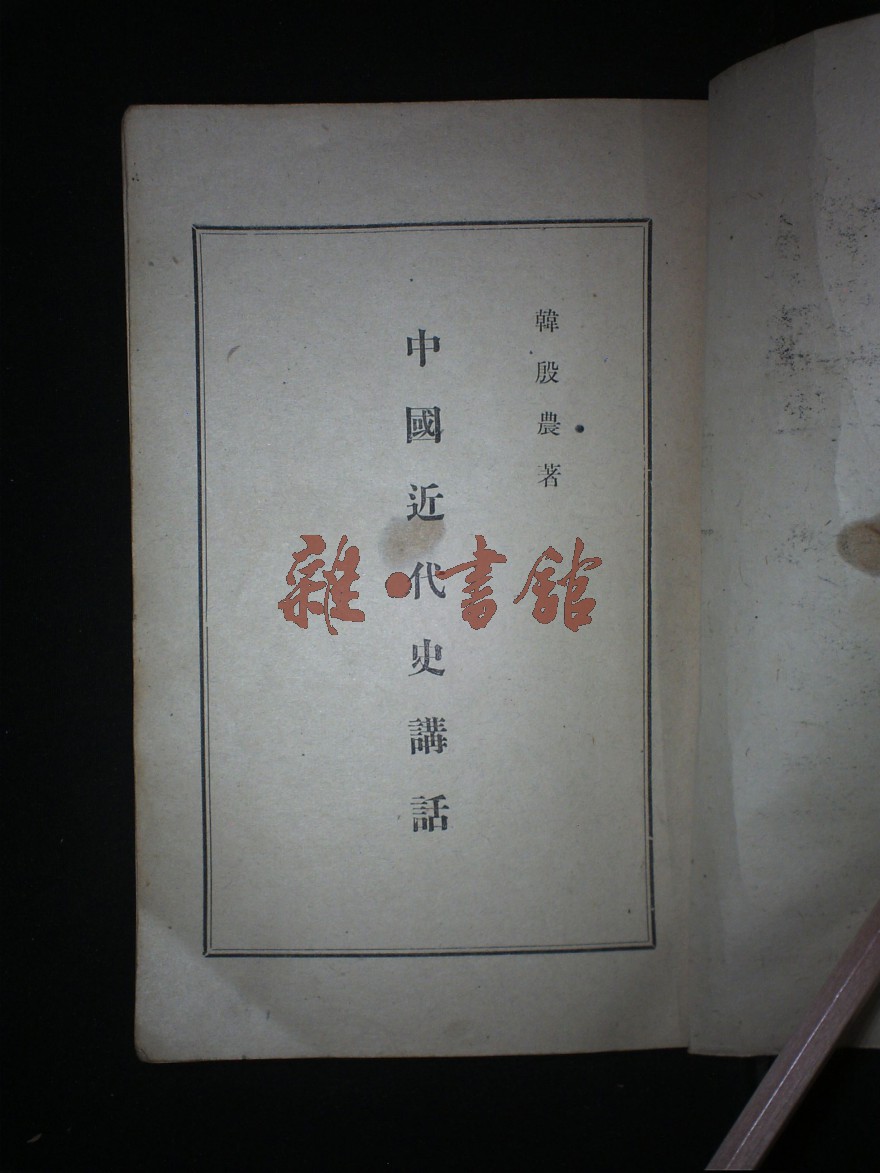 韓殷農著
中國近代史講話
雜·書館